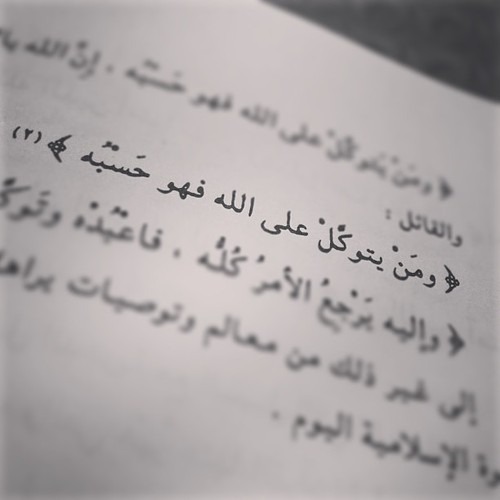 ﴿ ومَنْ يتوكَّلْ على الله فهو حَسْبُه . إنّ الله
والقائل :
﴿ ومَنْ يتوكَّلْ على الله فهو حَسْبُه ﴾ (٢)
﴿ وإليه يَرْجِعُ الأمرُ كُلُّه . فاعْبُدْهُ وتَوكَّ
إلى غير ذلك من معالم وتوصيات يراها
الإسلامية اليوم .